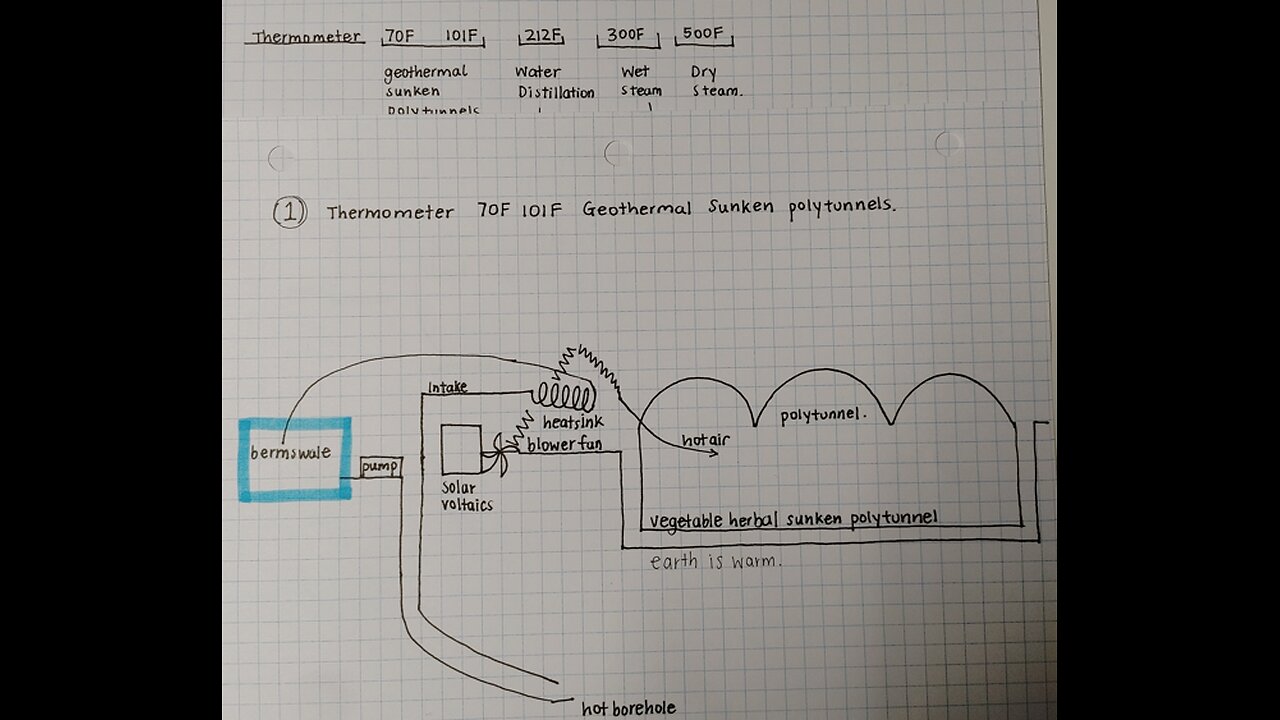 Thermometer 70F 101F 212F 300F 500F
geothermal Water Wet Dry
sunken Distillation steam steam.
polytunnels
1 Thermometer 70F 101F Geothermal Sunken polytunnels.
intake
heatsink
polytunnel.
blower fan
hot air
bermswale
pump
solar
voltaics
vegetable herbal sunken polytunnel
earth is warm.
hot borehole